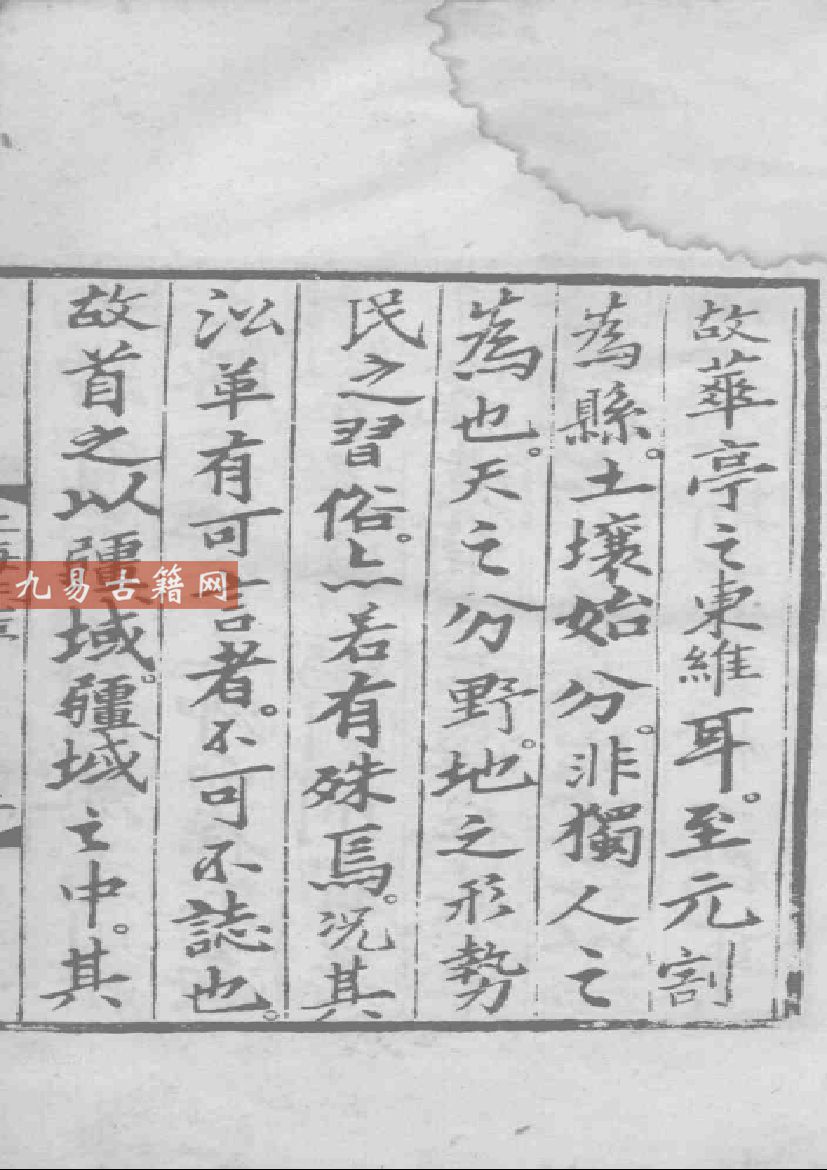 故華亭之東維耳。至元割
為縣。土壤始分。非獨人之
為也。天之分野。地之形勢
民之習俗。亦若有殊焉。況其
㳂革有可言者。不可不誌也。
故首之以疆域。疆域之中。其
九易古籍网